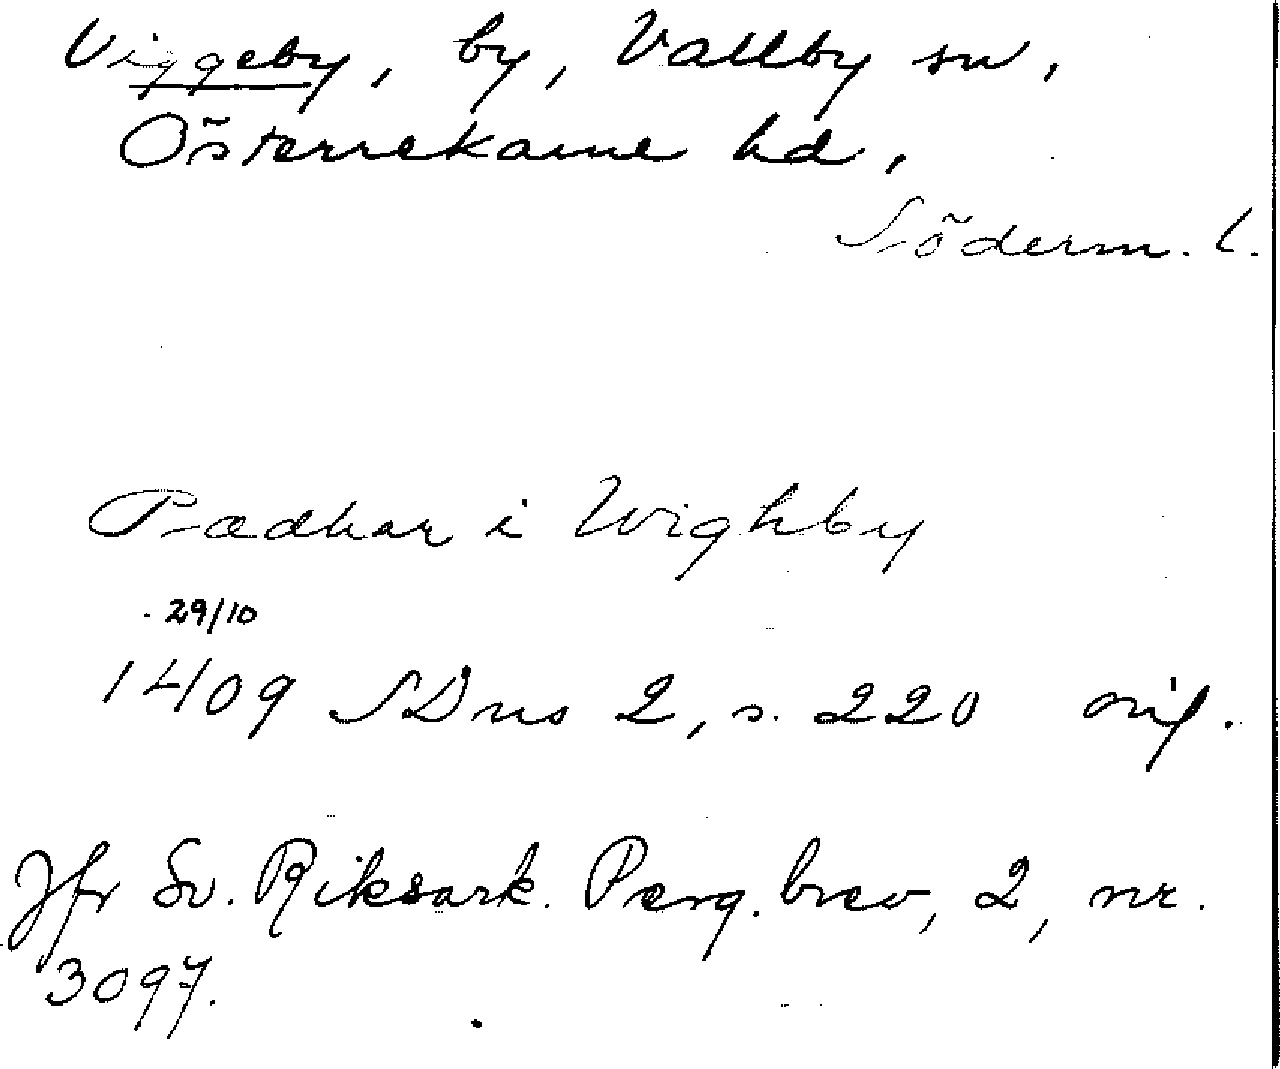 Viggeby, by, Vallby sn,
Österrekarne hd,
Söderm. l.
Pædhar i Wighby
29/10
1409 SDns 2, s. 220 orig.
Jfr Sv. Riksark. Perg. brev, 2, nr.
3097.